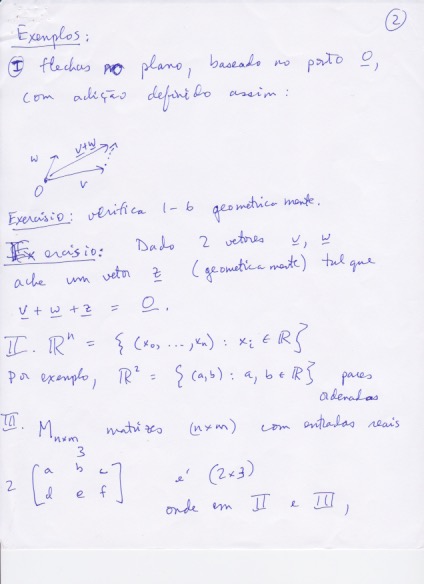 2
Exemplos:
I flechas no plano, baseado no ponto O,
com adição definido assim:
w v+w
O v
Exercísio: verifica 1-6 geometricamente.
Exercisio: Dado 2 vetores v, w
ache um vetor z (geometicamente) tal que
v + w + z = O.
II. ℝⁿ = { (x₀, ..., xₙ) : xᵢ ∈ ℝ }
Por exemplo, ℝ² = { (a,b) : a, b ∈ ℝ } pares
ordenados
III. Mₙₓₘ matrizes (n×m) com entradas reais
3
2 [ a b c
d e f ] é (2×3)
onde em II e III,